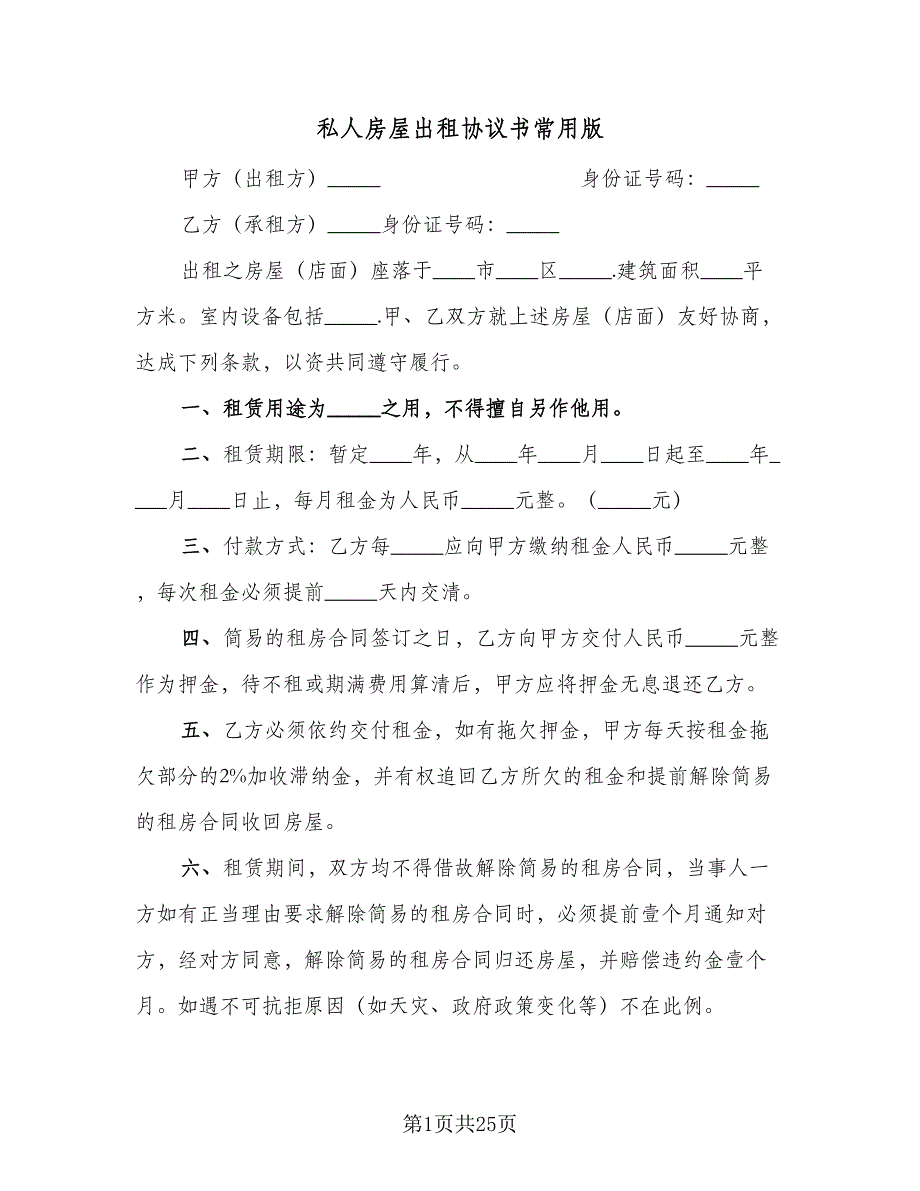 私人房屋出租协议书常用版
甲方（出租方）_____ 身份证号码：_____
乙方（承租方）_____身份证号码：_____
出租之房屋（店面）座落于____市____区_____.建筑面积____平
方米。室内设备包括_____.甲、乙双方就上述房屋（店面）友好协商，
达成下列条款，以资共同遵守履行。
一、租赁用途为_____之用，不得擅自另作他用。
二、租赁期限：暂定____年，从____年____月____日起至____年_
___月____日止，每月租金为人民币_____元整。（_____元）
三、付款方式：乙方每_____应向甲方缴纳租金人民币_____元整
，每次租金必须提前_____天内交清。
四、简易的租房合同签订之日，乙方向甲方交付人民币_____元整
作为押金，待不租或期满费用算清后，甲方应将押金无息退还乙方。
五、乙方必须依约交付租金，如有拖欠押金，甲方每天按租金拖
欠部分的2%加收滞纳金，并有权追回乙方所欠的租金和提前解除简易
的租房合同收回房屋。
六、租赁期间，双方均不得借故解除简易的租房合同，当事人一
方如有正当理由要求解除简易的租房合同时，必须提前壹个月通知对
方，经对方同意，解除简易的租房合同归还房屋，并赔偿违约金壹个
月。如遇不可抗拒原因（如天灾、政府政策变化等）不在此例。
第1页共25页